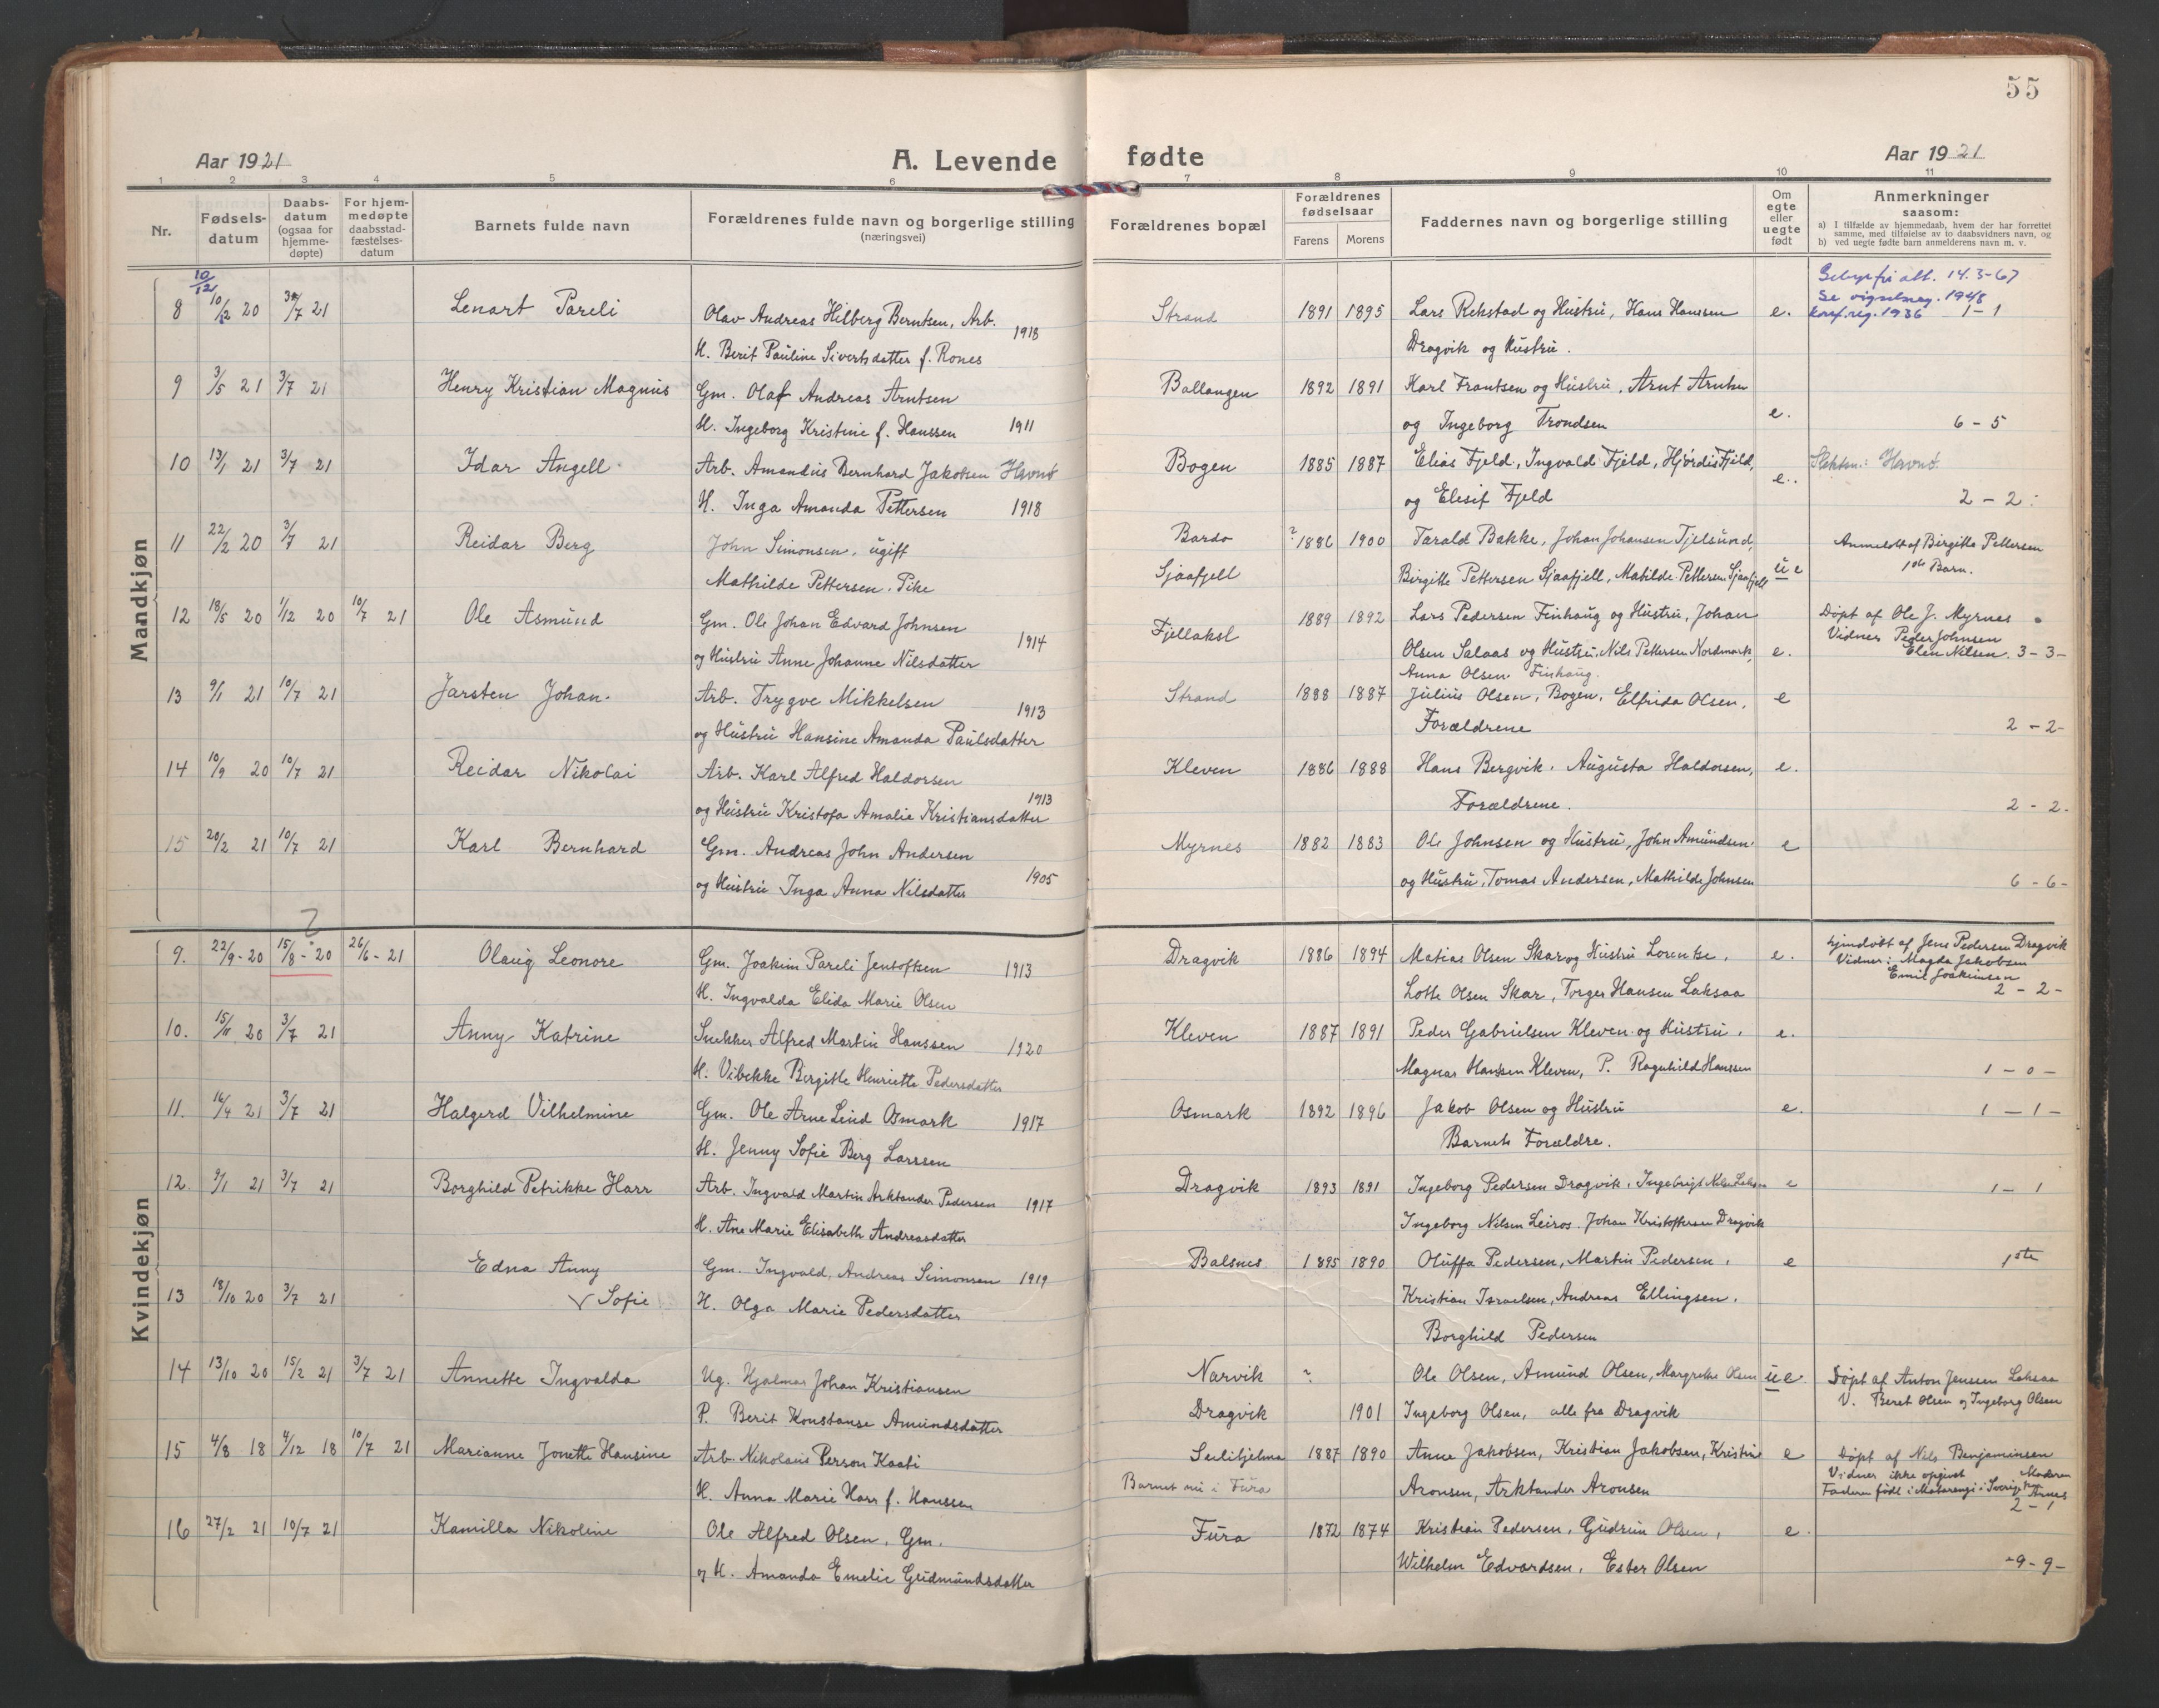 55
Aar 1921
A. Levende fødte
Aar 1921
1 2 3 4 5 6 7 8 9 10 11
Nr.
Fødsels-
datum
Daabs-
datum
(ogsaa for
hjemme-
døpte)
For hjem-
medøpte
daabsstad-
fæstelses-
datum
Barnets fulde navn
Forældrenes fulde navn og borgerlige stilling
(næringsvei)
Forældrenes bopæl
Forældrenes
fødselsaar
Farens Morens
Faddernes navn og borgerlige stilling
Om
egte
eller
uegte
født
Anmerkninger
saasom:
a) I tilfælde av hjemmedaab, hvem der har forrettet
samme, med tilføielse av to daabsvidners navn, og
b) ved uegte fødte barn anmelderens navn m. v.
Mandkjøn
10/12 att. 14.3-67
Se 1948
8 10/12 20 3/7 21 Lenart Pareli Olav Andreas Hilberg Berntsen, Arb. 1918 Strand 1891 1895 Lars Rekstad og Hustru, Hans Hanssen e. konf.reg. 1936 1-1
H. Berit Pauline Sivertsdatter f. Rones Dragvik og Hustru.
9 3/5 21 3/7 21 Henry Kristian Magnus Gm. Olaf Andreas Arntsen Ballangen 1892 1891 Karl Frantsen og Hustru, Arnt Arntsen
H. Ingeborg Kristine f. Hanssen 1911 og Ingeborg Trondsen e. 6-5
10 13/1 21 3/7 21 Idar Angell. Arb. Amandus Bernhard Jakobsen Havnö Bogen 1885 1887 Elias Fjeld, Ingvald Fjeld, Hjördis Fjeld, e. Slektsn.: Havnö
H. Inga Amanda Pettersen 1918 og Elesif Fjeld 2-2
11 22/2 20 3/7 21 Reidar Berg John Simonsen, ugift Bardo ? 1886 1900 Tarald Bakke, Johan Johansen Tjelsund, Anmeldt af Birgitte Pettersen
Mathilde Pettersen. Pike Sjaafjell Birgitte Pettersen Sjaafjell, Matilde Pettersen Sjaafjell ue 1ste Barn.
12 18/5 20 1/12 20 10/7 21 Ole Asmund Gm. Ole Johan Edvard Johnsen 1914 Fjellaksl 1889 1892 Lars Pedersen Finhaug og Hustru, Johan Döpt af Ole J. Myrnes
Vidner Peder Johnsen
og Hustru Anne Johanne Nilsdatter Olsen Salaas og Hustru, Nils Pettersen Nordmark, e. Elen Nilsen. 3-3-
Anna Olsen Finhaug.
13 9/1 21 10/7 21 Jarsten Johan. Arb. Trygve Mikkelsen 1913 Strand 1888 1887 Julius Olsen, Bogen, Elfrida Olsen, e
og Hustru Hansine Amanda Paulsdatter Forældrene 2-2-
14 10/9 20 10/7 21 Reidar Nikolai Arb. Karl Alfred Haldorsen Kleven 1886 1888 Hans Bergvik. Augusta Haldorsen, e.
og Hustru Kristofa Amalie Kristiansdatter 1913 Forældrene. 2-2-
15 20/2 21 10/7 21 Karl Bernhard Gm. Andreas John Andersen Myrnes 1882 1883 Ole Johnsen og Hustru, John Amundsen e
og Hustru Inga Anna Nilsdatter 1905 og Hustru, Tomas Andersen, Mathilde Johnsen 6-6-
Kvindekjøn
?
9. 22/9-20 15/8-20 26/6-21 Olaug Leonore Gm. Joakim Pareli Jentoftsen 1913 Dragvik 1886 1894 Matias Olsen Skar og Hustru Lorentse, e. hjemdöbt af Jens Pedersen Dragvik
Vidner: Magda Jakobsen
Emil Joakimsen
H. Ingvalda Elida Marie Olsen Lotte Olsen Skar, Torger Hansen Laksaa 2-2-
10. 15/11 20 3/7 21 Anny Katrine Snekker Alfred Martin Hanssen 1920 Kleven 1887 1891 Peder Gabrielsen Kleven og Hustru, e.
H. Vibekke Bergitte Henriette Pedersdatter Magnar Hanssen Kleven, P. Ragnhild Hanssen 1-0-
11. 16/4 21 3/7 21 Halgerd Vilhelmine Gm. Ole Arne Lind Osmark 1917 Osmark 1892 1896 Jakob Olsen og Hustru e. 1-1-
H. Jenny Sofie Berg Larssen Barnets Forældre.
12. 9/1 21 3/7 21 Borghild Petrikke Harr Arb. Ingvald Martin Arktander Pedersen 1917 Dragvik 1893 1891 Ingeborg Pedersen Dragvik, e 1-1
H. Ane Marie Elisabeth Andreasdatter Ingeborg Nilsen Leiros. Johan Kristoffersen Dragvik
13 18/10 20 3/7 21 Edna Anny Gm. Ingvald Andreas Simonsen 1919 Balsnes 1895 1890 Oluffa Pedersen, Martin Pedersen, e 1ste
√ Sofie H. Olga Marie Pedersdatter Kristian Israelsen, Andreas Ellingsen,
Borghild Pedersen
14 13/10 20 15/2 21 3/7 21 Annette Ingvalda Ug. Hjalmar Johan Kristiansen Narvik ? Ole Olsen, Amund Olsen, Margrethe Olsen ue Döpt af Anton Jenssen Laksaa
P. Berit Konstanse Amundsdatter Dragvik 1901 Ingeborg Olsen, alle fra Dragvik V. Beret Olsen og Ingeborg Olsen
15 4/8 18 4/12 18 10/7 21 Marianne Jonette Hansine Arb. Nikolaus Person Kaati Sulitjelma 1887 1890 Anne Jakobsen, Kristian Jakobsen, Kristine e Döpt af Nils Benjaminsen
Vidner ikke opgivet Moderen
H. Anna Marie Harr f. Hanssen Barnet nu i Fura Aronsen, Arktander Aronsen Faderen född i Matarengi i Sverige
2-1
16 27/2 21 10/7 21 Kamilla Nikoline Ole Alfred Olsen, Gm. Fura 1872 1874 Kristian Pedersen, Gudrun Olsen, e.
og H. Amanda Emelie Gudmundsdatter Wilhelm Edvardsen, Ester Olsen -9-9-